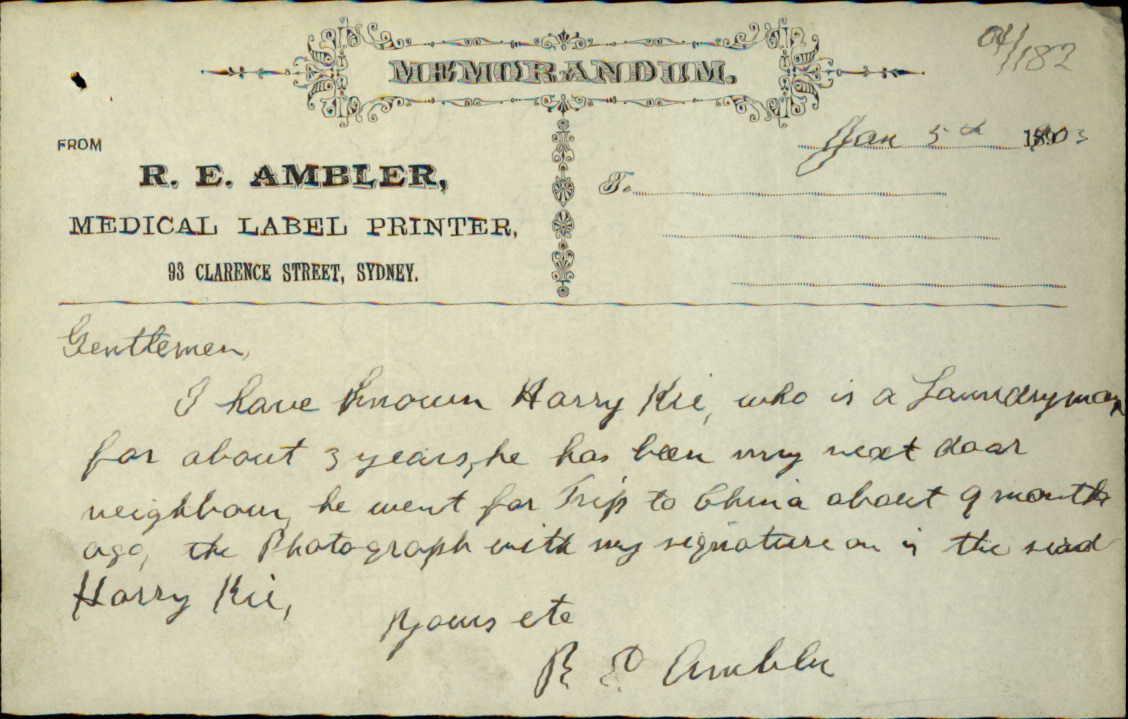 04/182
MEMORANDUM.
FROM
R. E. AMBLER,
MEDICAL LABEL PRINTER,
93 CLARENCE STREET, SYDNEY.
Jan 5th 1903
To
Gentlemen,
I have known Harry Kie, who is a Laundryman
for about 3 years, he has been my next door
neighbour, he went for Trip to China about 9 months
ago, the Photograph with my signature on is the said
Harry Kie,
Yours etc
R E Ambler